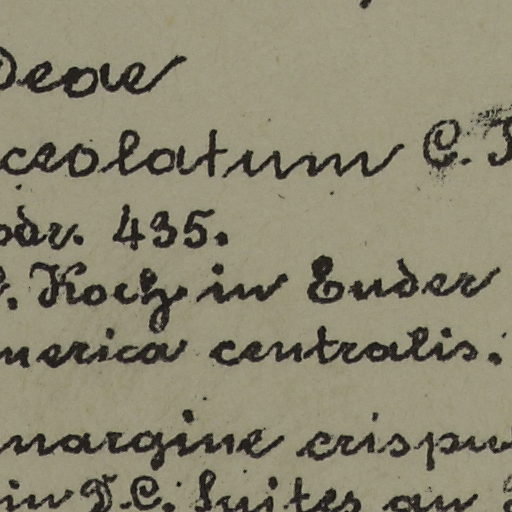 Deae
ceolatum C.
odr. 435.
Koch in Ender
merica centralis.
margine crispu
in D.C. Suites au